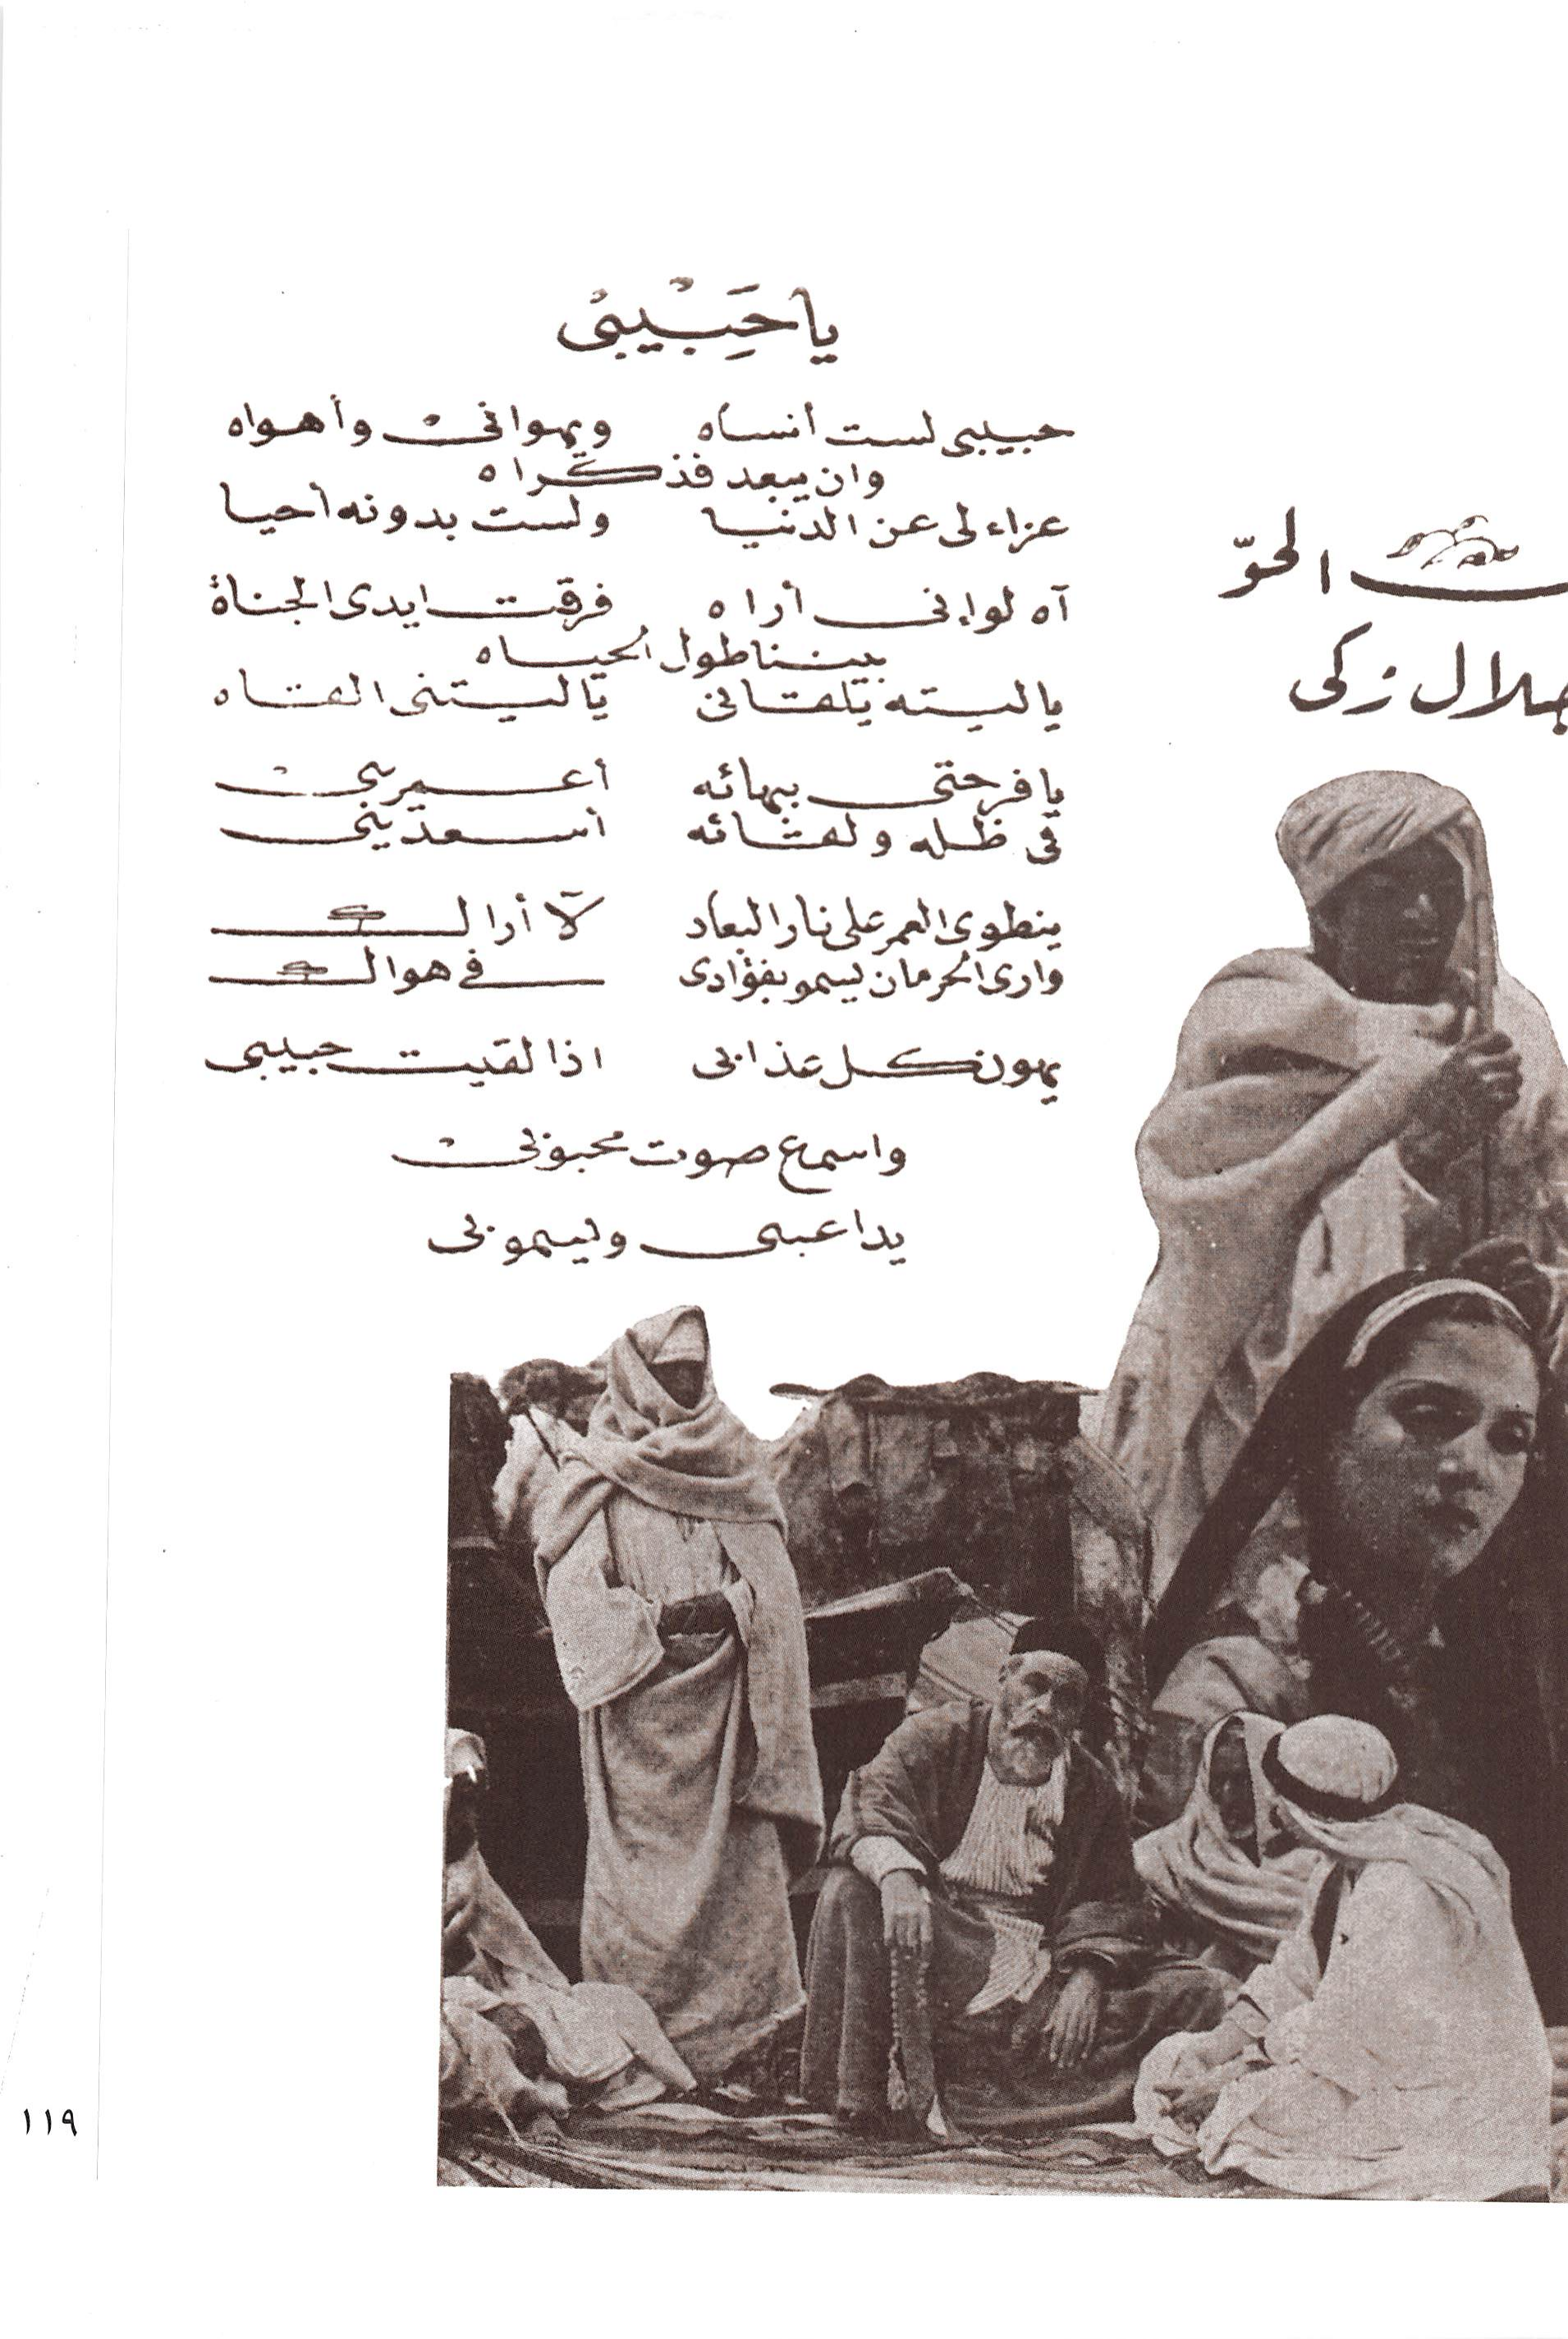 يا حَبِيْبىْ
حبيبى لست أنساه ويهوانى وأهواه
وان يبعد فذكراه
عزاء لى عن الدنيا ولست بدونه أحيا
آه لو اننى أراه فرقت ايدى الجناة
بيننا طول الحياه
يا ليته يلقانى يا ليتنى القاه
يا فرحتى ببهائه أعمرينى
فى ظله ولقائه أسعدينى
ينطوى العمر على نار البعاد لا أراك
وارى الحرمان يسمو بفؤادى فى هواك
يهون كل عذابى اذا لقيت حبيبى
واسمع صوت محبوبى
يداعبنى ويسمو بى
الحوّ
هلال زكى
١١٩